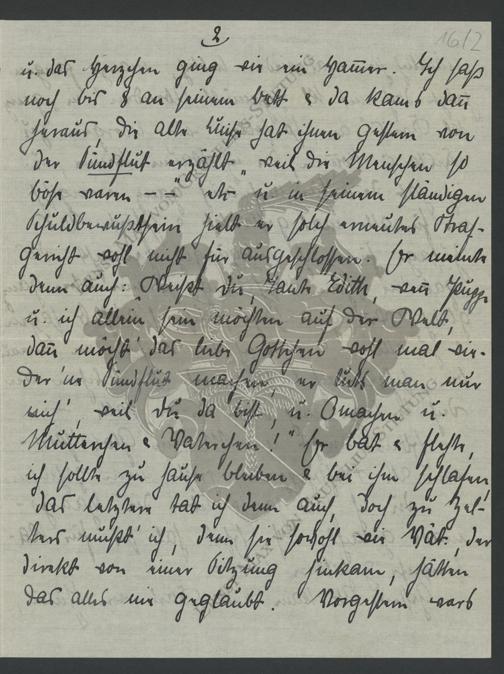 2
16/2
u. das Herzchen ging wie ein Ham̄er. Ich saß
noch bis 8 an seinem bett & da kams dan̄
heraus, die alte Luise hat ihnen gestern von
der Sündflut erzählt „weil die Menschen so
böse waren – –" etc u in seinem ständigen
Schuldbewußtsein hielt er solch erneutes Straf-
gericht wohl nicht für ausgeschlossen. Er meinte
denn auch: Weißt du, Tante Edith, wen̄ Puppe
u. ich allein sein möchten auf der Welt,
dan̄ möcht' das liebe Gottchen wohl mal wie-
der 'ne Sündflut machen, er tuts man nur
nich', weil du da bist, u. Omachen u.
Mutterchen & Vaterchen!" Er bat & flehte,
ich sollte zu hause bleiben & bei ihm schlafen,
das letztere tat ich denn auch, doch zu
mußt' ich, denn sie sowohl wie Vät, der
direkt von einer Sitzung hinkam, hätten
das alles nie geglaubt. Vorgestern wars